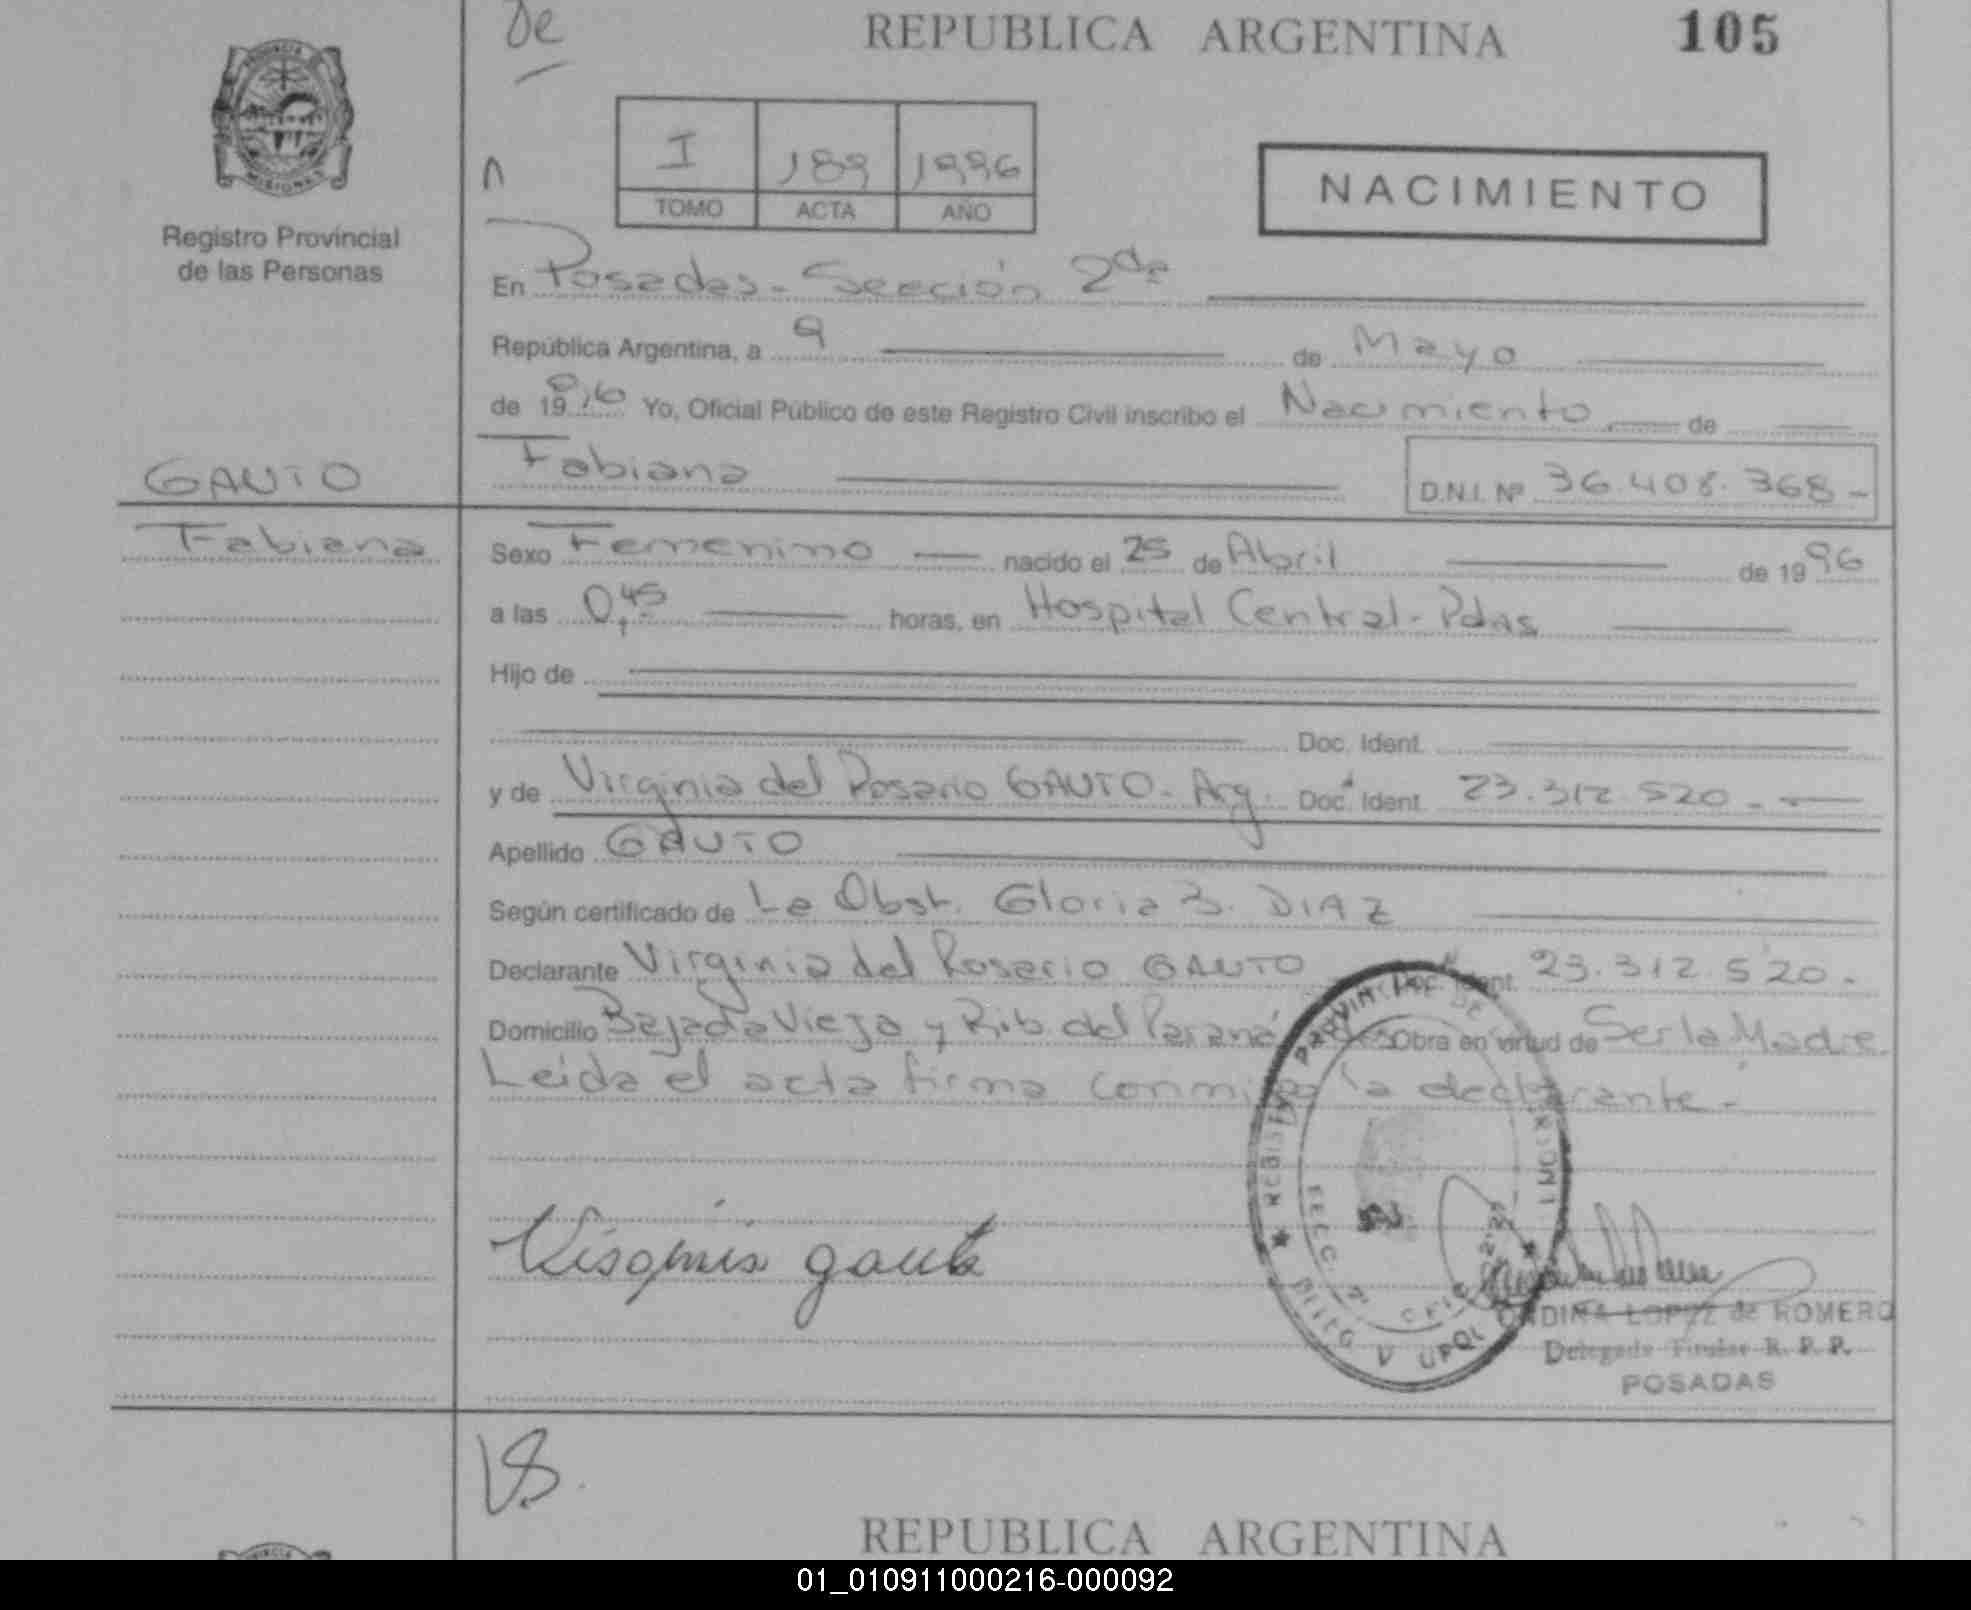 De
REPUBLICA ARGENTINA 105
PROVINCIA
MISIONES
Registro Provincial
de las Personas
I 189 1996
TOMO ACTA AÑO
NACIMIENTO
En Posadas - Sección 2da
República Argentina, a 9 de Mayo
de 1996 Yo, Oficial Público de este Registro Civil inscribo el Nacimiento de
GAUTO
Fabiana
Fabiana D.N.I. Nº 36.408.368-
Sexo Femenino nacido el 25 de Abril de 1996
a las 0,45 horas, en Hospital Central - Pdas
Hijo de
Doc. Ident.
y de Virginia del Rosario GAUTO - Arg. Doc. Ident. 23.312.520.-
Apellido GAUTO
Según certificado de La Obst. Gloria B. DIAZ
Declarante Virginia del Rosario GAUTO Ident. 23.312.520.-
Domicilio Bajada Vieja y Rib. del Paraná Obra en virtud de Ser la Madre
Leída el acta firma conmigo la declarante.-
Virginia gauto
LOPEZ de ROMERO
Delegada Titular R. P. P.
POSADAS
REPUBLICA ARGENTINA
01_010911000216-000092